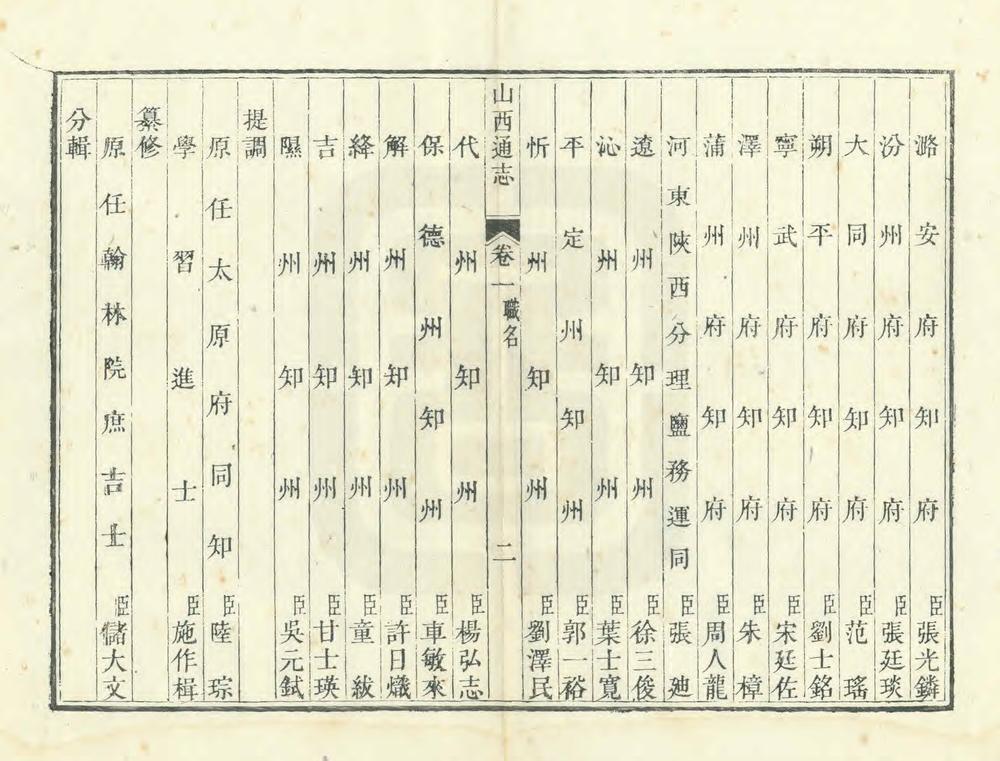 潞安府知府臣張光鏻
汾州府知府臣張廷琰
大同府知府臣范瑤
朔平府知府臣劉士銘
寧武府知府臣宋廷佐
澤州府知府臣朱樟
蒲州府知府臣周人龍
河東陝西分理鹽務運同臣張廸
遼州知州臣徐三俊
沁州知州臣葉士寬
平定州知州臣郭一裕
忻州知州臣劉澤民
山西通志 卷一 職名 二
代州知州臣楊弘志
保德州知州臣車敏來
解州知州臣許日熾
絳州知州臣童紱
吉州知州臣甘士瑛
隰州知州臣吳元鉽
提調
原任太原府同知臣陸琮
學習進士臣施作楫
纂修
原任翰林院庶吉士臣儲大文
分輯